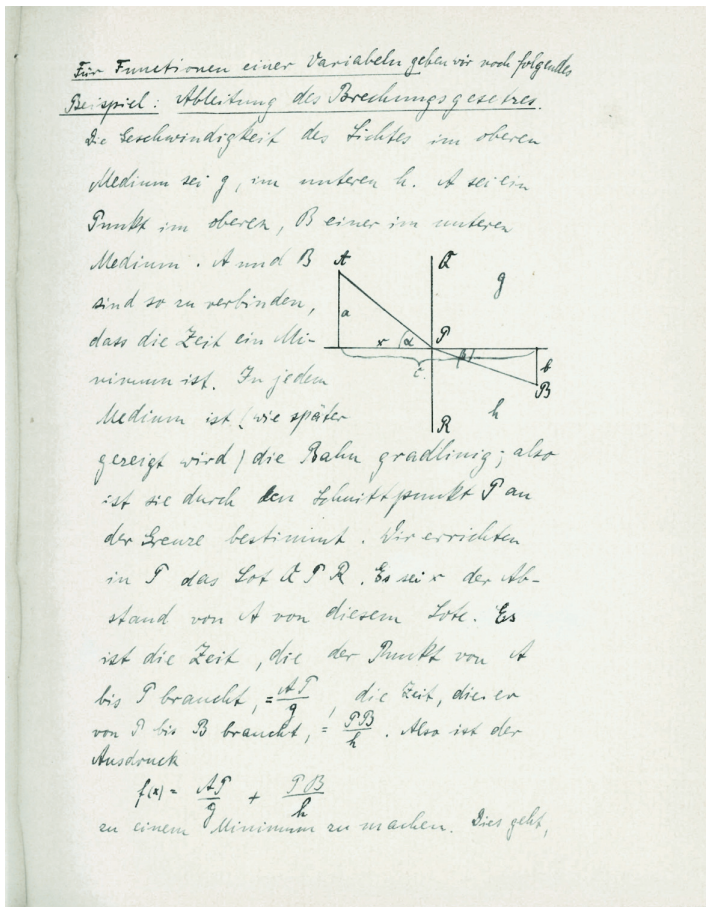 Für Functionen einer Variabeln geben wir noch folgendes
Beispiel: Ableitung des Brechungsgesetzes.
Die Geschwindigkeit des Lichtes im oberen
Medium sei g, im unteren h. A sei ein
Punkt im oberen, B einer im unteren
Medium. A und B
sind so zu verbinden,
dass die Zeit ein Mi-
nimum ist. In jedem
Medium ist (wie später
A
Q
g
a
x
α
P
β
c
b
B
h
R
gezeigt wird) die Bahn gradlinig; also
ist sie durch den Schnittpunkt P an
der Grenze bestimmt. Wir errichten
in P das Lot Q P R. Es sei x der Ab-
stand von A von diesem Lote. Es
ist die Zeit, die der Punkt von A
bis P braucht, = AP/g, die Zeit, die er
von P bis B braucht, = PB/h. Also ist der
Ausdruck
f(x) = AP/g + PB/h
zu einem Minimum zu machen. Dies geht,